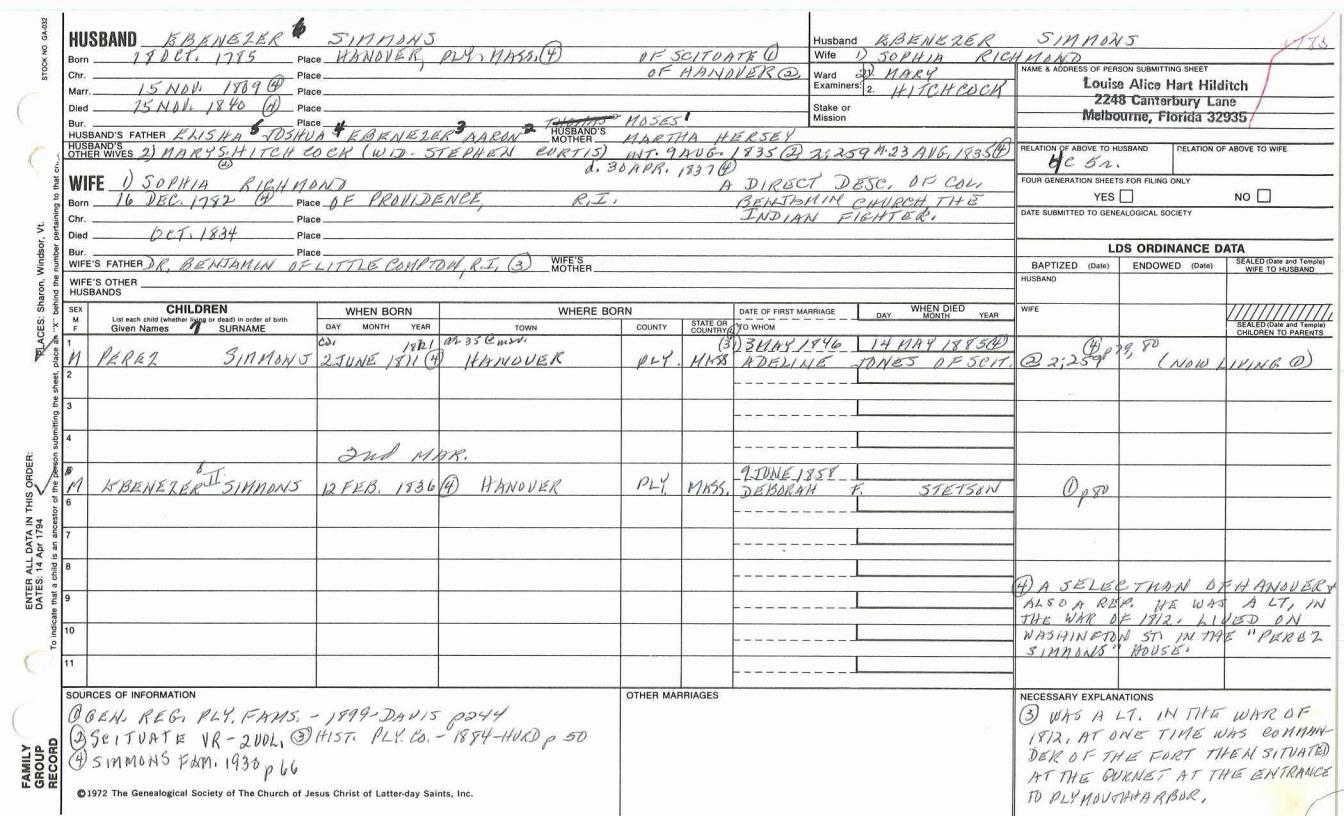 STOCK NO. GA-032
HUSBAND EBENEZER 6 SIMMONS
Born 18 OCT. 1785 Place HANOVER, PLY. MASS. (4) OF SCITUATE (1)
Chr. Place OF HANOVER (2)
Marr. 15 NOV. 1809 (4) Place
Died 15 NOV. 1840 (4) Place
Bur. Place
HUSBAND'S FATHER ELISHA 5 JOSHUA 4 EBENEZER 3 AARON 2 THOMAS MOSES 1 HUSBAND'S MOTHER MARTHA HERSEY
HUSBAND'S OTHER WIVES 2) MARY S. HITCHCOCK (WID. STEPHEN CURTIS) INT. 9 AUG. 1835 (2) 2;259 M. 23 AUG. 1835 (4)
d. 30 APR. 1837 (4)
Husband EBENEZER SIMMONS
Wife 1) SOPHIA RICHMOND
Ward 2) MARY
Examiners: 2. HITCHCOCK
Stake or Mission
NAME & ADDRESS OF PERSON SUBMITTING SHEET
Louise Alice Hart Hilditch
2248 Canterbury Lane
Melbourne, Florida 32935
RELATION OF ABOVE TO HUSBAND RELATION OF ABOVE TO WIFE
4C 5r.
FOUR GENERATION SHEETS FOR FILING ONLY
YES NO
DATE SUBMITTED TO GENEALOGICAL SOCIETY
WIFE 1) SOPHIA RICHMOND A DIRECT DESC. OF COL.
Born 16 DEC. 1782 (4) Place OF PROVIDENCE, R.I. BENJAMIN CHURCH, THE
Chr. Place INDIAN FIGHTER.
Died OCT. 1834 Place
Bur. Place
WIFE'S FATHER DR. BENJAMIN OF LITTLE COMPTON, R.I. (3) WIFE'S MOTHER
WIFE'S OTHER HUSBANDS
LDS ORDINANCE DATA
BAPTIZED (Date) ENDOWED (Date) SEALED (Date and Temple) WIFE TO HUSBAND
HUSBAND
WIFE
SEALED (Date and Temple) CHILDREN TO PARENTS
SEX M F CHILDREN List each child (whether living or dead) in order of birth Given Names 7 SURNAME
WHEN BORN DAY MONTH YEAR
WHERE BORN TOWN COUNTY STATE OR COUNTRY
DATE OF FIRST MARRIAGE TO WHOM
WHEN DIED DAY MONTH YEAR
1 (3) 3 MAY 1846 14 MAY 1885 (4) (4) p 79, 80
M PEREZ SIMMONS 2 JUNE 1811 (4) HANOVER PLY. MASS ADELINE JONES OF SCIT. (2) 2;259 (NOW LIVING (1))
2
3
4
2nd MAR.
5 9 JUNE 1858
M EBENEZER II SIMMONS 12 FEB. 1836 (4) HANOVER PLY. MASS. DEBORAH F. STETSON (1) p 80
6
7
8
9
10
11
(4) A SELECTMAN OF HANOVER +
ALSO A REP. HE WAS A LT. IN
THE WAR OF 1812. LIVED ON
WASHINGTON ST. IN THE "PEREZ
SIMMONS" HOUSE.
SOURCES OF INFORMATION
(1) GEN. REG. PLY. FAMS. - 1899 - DAVIS p 244
(2) SCITUATE VR - 2 VOL. (3) HIST. PLY. CO. - 1884 - HURD p 50
(4) SIMMONS FAM. 1930 p 66
OTHER MARRIAGES
NECESSARY EXPLANATIONS
(3) WAS A LT. IN THE WAR OF
1812, AT ONE TIME WAS COMMAN-
DER OF THE FORT THEN SITUATED
AT THE GURNET AT THE ENTRANCE
TO PLYMOUTH HARBOR.
©1972 The Genealogical Society of The Church of Jesus Christ of Latter-day Saints, Inc.
FAMILY GROUP RECORD
ENTER ALL DATA IN THIS ORDER:
DATES: 14 Apr 1794
PLACES: Sharon, Windsor, Vt.
To indicate that a child is an ancestor of the person submitting the sheet, place an "X" behind the number pertaining to that